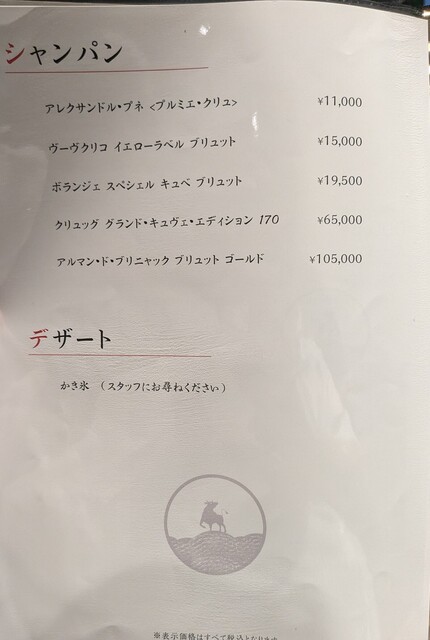 シャンパン
アレクサンドル・ブネ <プルミエ・クリュ> ¥11,000
ヴーヴクリコ イエローラベル ブリュット ¥15,000
ボランジェ スペシェル キュベ ブリュット ¥19,500
クリュッグ グランド・キュヴェ・エディション 170 ¥65,000
アルマン・ド・ブリニャック ブリュット ゴールド ¥105,000
デザート
かき氷 (スタッフにお尋ねください)
※表示価格はすべて税込となります